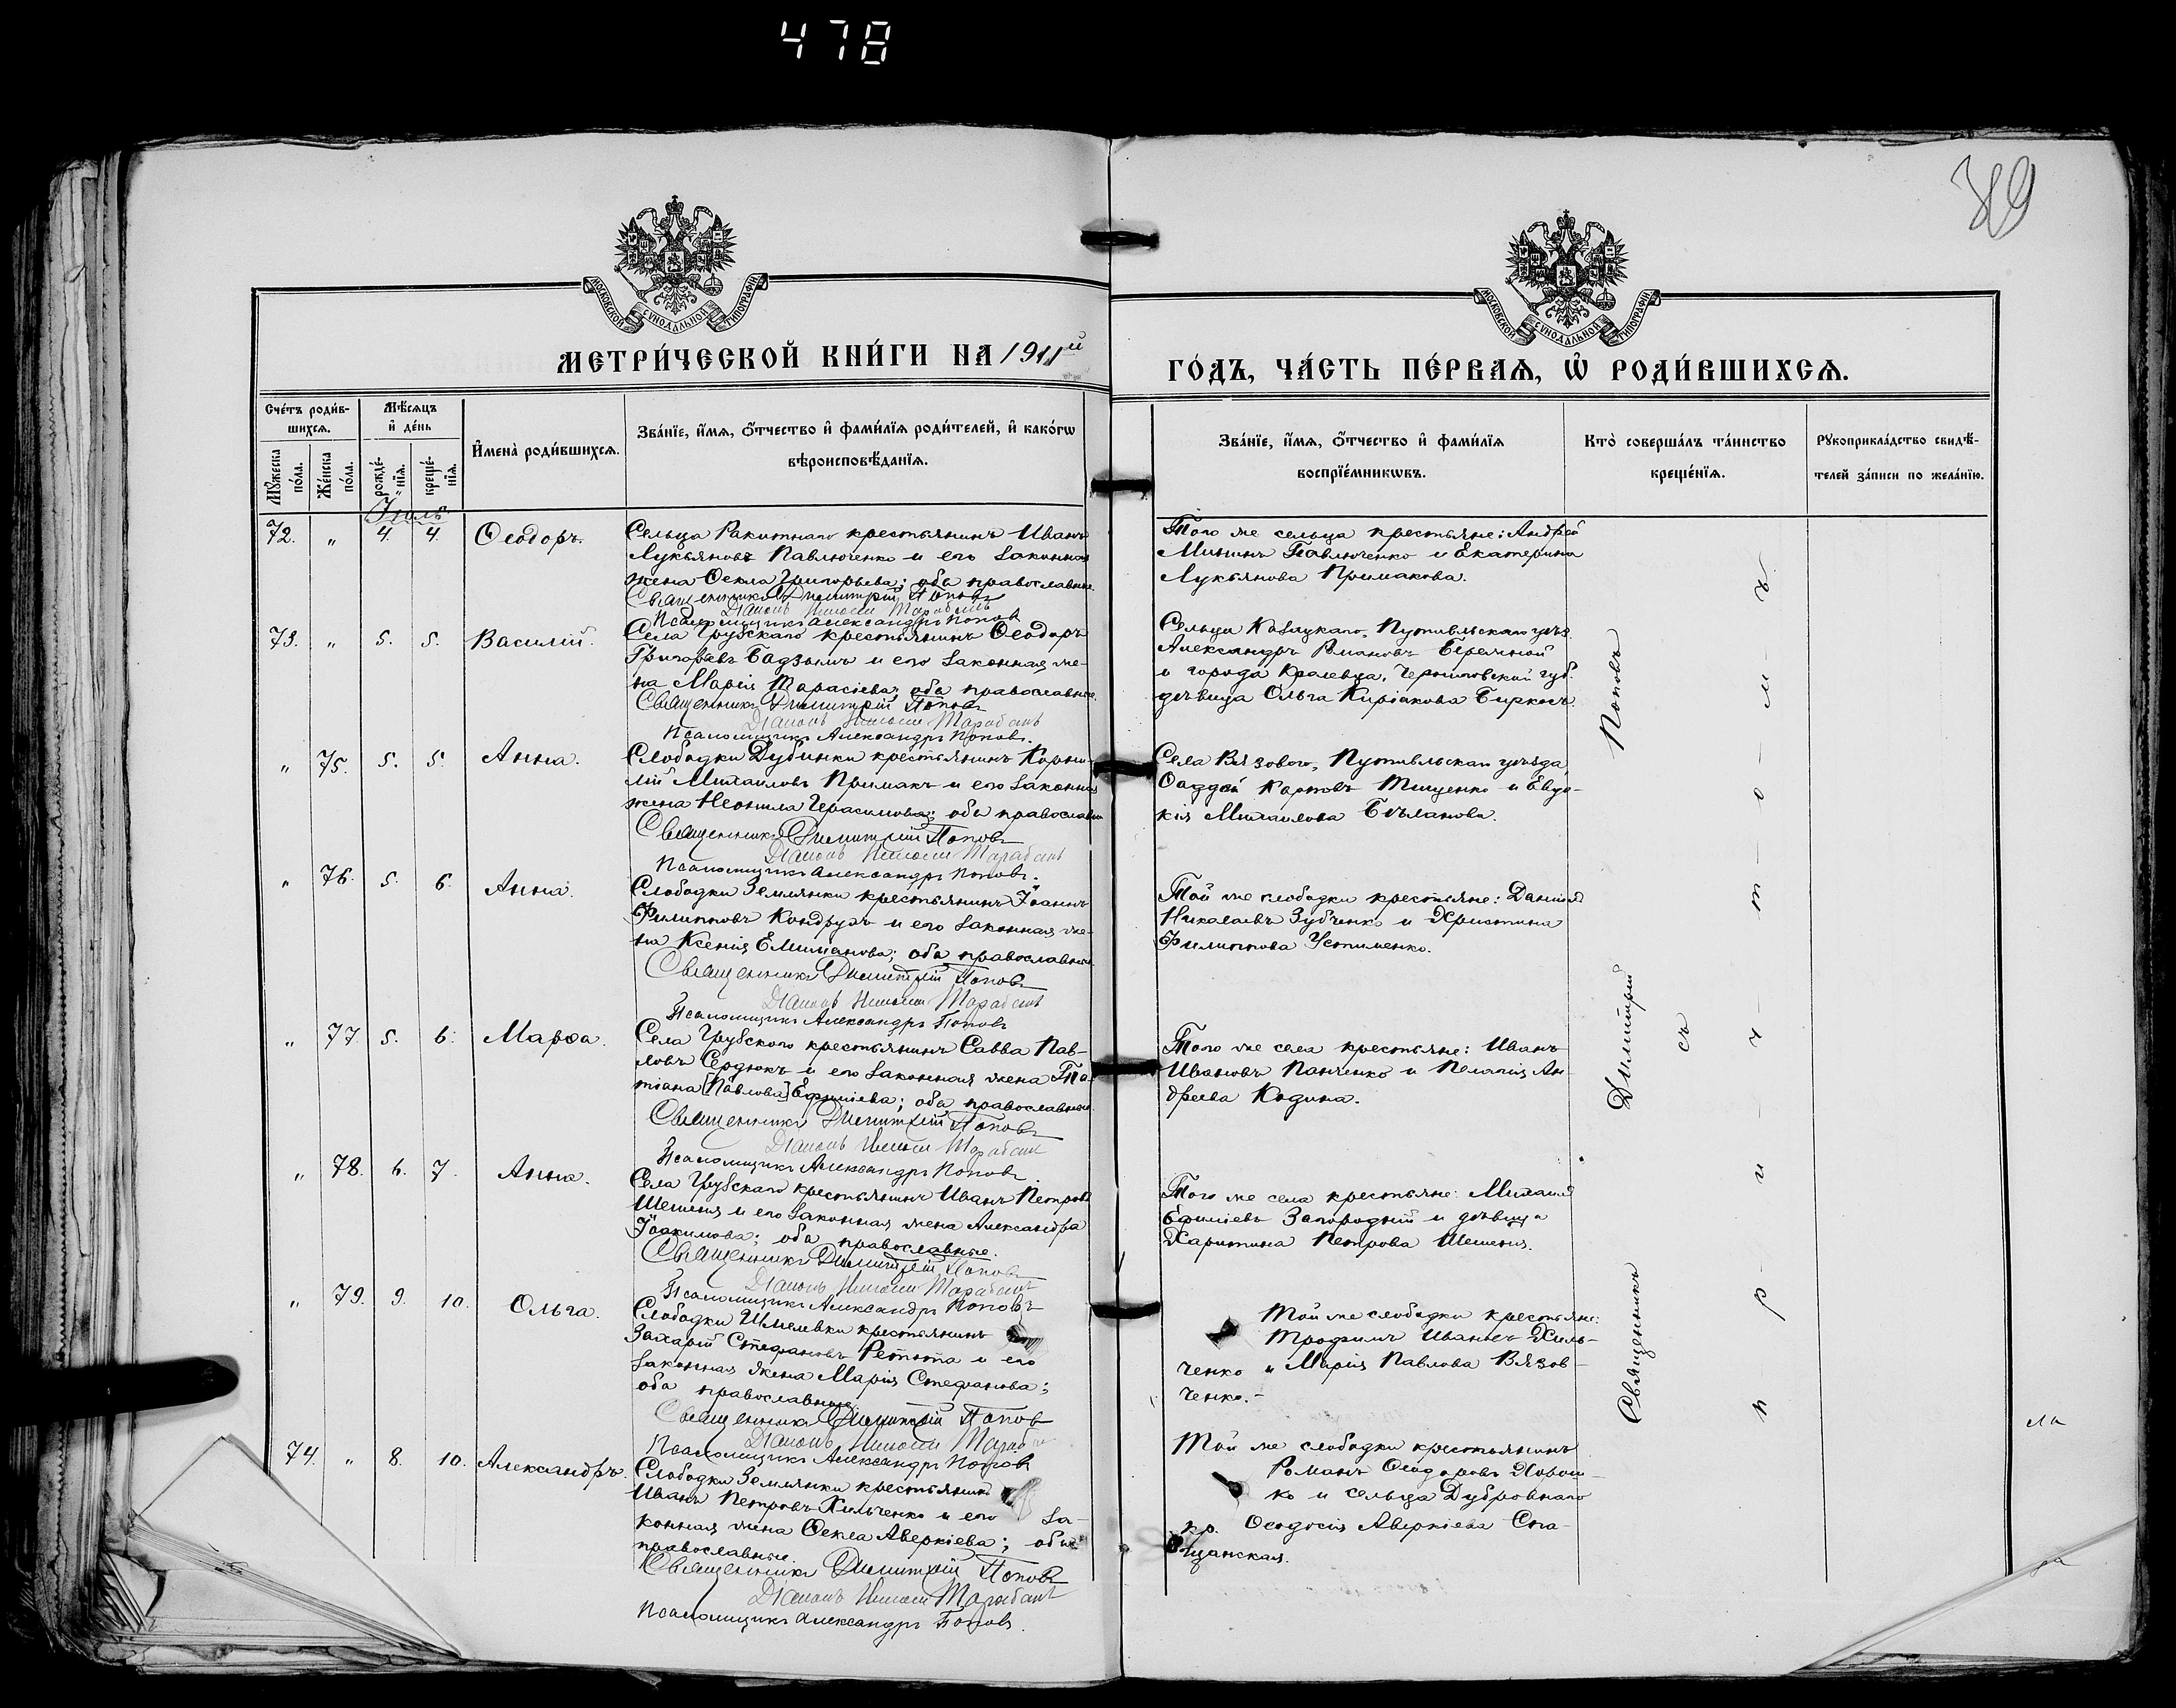 478
389
МОСКОВСКОЙ СѴНОДАЛЬНОЙ ТИПОГРАФІИ
МОСКОВСКОЙ СѴНОДАЛЬНОЙ ТИПОГРАФІИ
МЕТРИ́ЧЕСКОЙ КНИ́ГИ НА 1911й
ГО́ДЪ, ЧА́СТЬ ПЕ́РВАѦ, Ѡ҆ РОДИ́ВШИХСѦ.
Сче́тъ роди́в-
шихсѧ.
Мꙋ́жеска по́ла.
Же́нска по́ла.
Мѣ́сѧцъ
и҆ де́нь
рожде́-
нїѧ.
креще́-
нїѧ.
И҆мена̀ роди́вшихсѧ.
Зва́нїе, и҆́мѧ, ѻ҆́тчество и҆ фами́лїѧ роди́телей, и҆ како́гѡ
вѣроисповѣ́данїѧ.
Зва́нїе, и҆́мѧ, ѻ҆́тчество и҆ фами́лїѧ
воспрїе́мникѡвъ.
Кто̀ соверша́лъ та́инство
креще́нїѧ.
Рꙋкоприкла́дство свидѣ́-
телей за́писи по жела́нїю.
Іюль
72. " 4. 4. Ѳеодоръ.
Сельца Ракитнаго крестьянинъ Иванъ
Лукьяновъ Павлюченко и его законная
жена Ѳекла Григорьева; оба православные.
Священникъ Димитрій Поповъ
Діаконъ
Псаломщикъ Александръ Поповъ
Того же сельца крестьяне: Андрей
Мининъ Павлюченко и Екатерина
Лукьянова Примакова.
73. " 5. 5. Василій.
Села Грузскаго крестьянинъ Ѳеодоръ
Григорьевъ Бадзымъ и его законная же-
на Марія Тарасіева; оба православные.
Священникъ Димитрій Поповъ
Діаконъ
Псаломщикъ Александръ Поповъ.
Сельца Казацкаго, Путивльскаго уѣз.
Александръ Романовъ Беремной
и города Кролевца, Черниговской губ.
дѣвица Ольга Киріакова Биркосъ.
" 75. 5. 5. Анна.
Слободки Дубинки крестьянинъ Корни-
лій Михаиловъ Примакъ и его законная
жена Неонила Герасимова; оба православные
Священникъ Димитрій Поповъ
Діаконъ
Псаломщикъ Александръ Поповъ.
Села Вязового, Путивльскаго уѣзда,
Ѳаддей Карповъ Тищенко и Евдо-
кія Михаилова Бѣланова.
" 76. 5. 6. Анна.
Слободки Землянки крестьянинъ Іоаннъ
Филипповъ Кондрухъ и его законная же-
на Ксенія Емиліанова; оба православные
Священникъ Димитрій Поповъ
Діаконъ
Псаломщикъ Александръ Поповъ
Той же слободки крестьяне: Даніилъ
Николаевъ Зубченко и Христина
Филиппова Устименко.
" 77 5. 6. Марѳа.
Села Грузского крестьянинъ Савва Пав-
ловъ Сердюкъ и его законная жена Та-
тіана [Павлова] Ефиміева; оба православные.
Священникъ Димитрій Поповъ
Діаконъ
Псаломщикъ Александръ Поповъ
Того же села крестьяне: Иванъ
Ивановъ Панченко и Пелагія Ан-
дреева Кодина.
" 78. 6. 7. Анна.
Села Грузскаго крестьянинъ Иванъ Петровъ
Шешеня и его законная жена Александра
Іоакимова; оба православные.
Священникъ Димитрій Поповъ
Діаконъ
Псаломщикъ Александръ Поповъ
Того же села крестьяне: Михаилъ
Ефиміевъ Загородній и дѣвица
Харитина Петрова Шешеня.
" 79. 9. 10. Ольга.
Слободки Шмелевки крестьянинъ
Захарій Стефановъ Ретюта и его
законная жена Марія Стефанова;
оба православные.
Священникъ Димитрій Поповъ
Діаконъ
Псаломщикъ Александръ Поповъ
Той же слободки крестьяне:
Трофимъ Ивановъ Хиль-
ченко и Марія Павлова Вязов-
ченко.
74. " 8. 10. Александръ.
Слободки Землянки крестьянинъ
Иванъ Петровъ Хильченко и его за-
конная жена Ѳекла Аверкіева; оба
православные.
Священникъ Димитрій Поповъ
Діаконъ
Псаломщикъ Александръ Поповъ.
Той же слободки крестьянинъ
Романъ Ѳеодоровъ Хорош-
ко и сельца Дубровнаго
кр. Ѳеодосія Аверкіева Ста-
щанская.
Священникъ Димитрій Поповъ
съ
п-р-и-ч-т-о-м-ъ